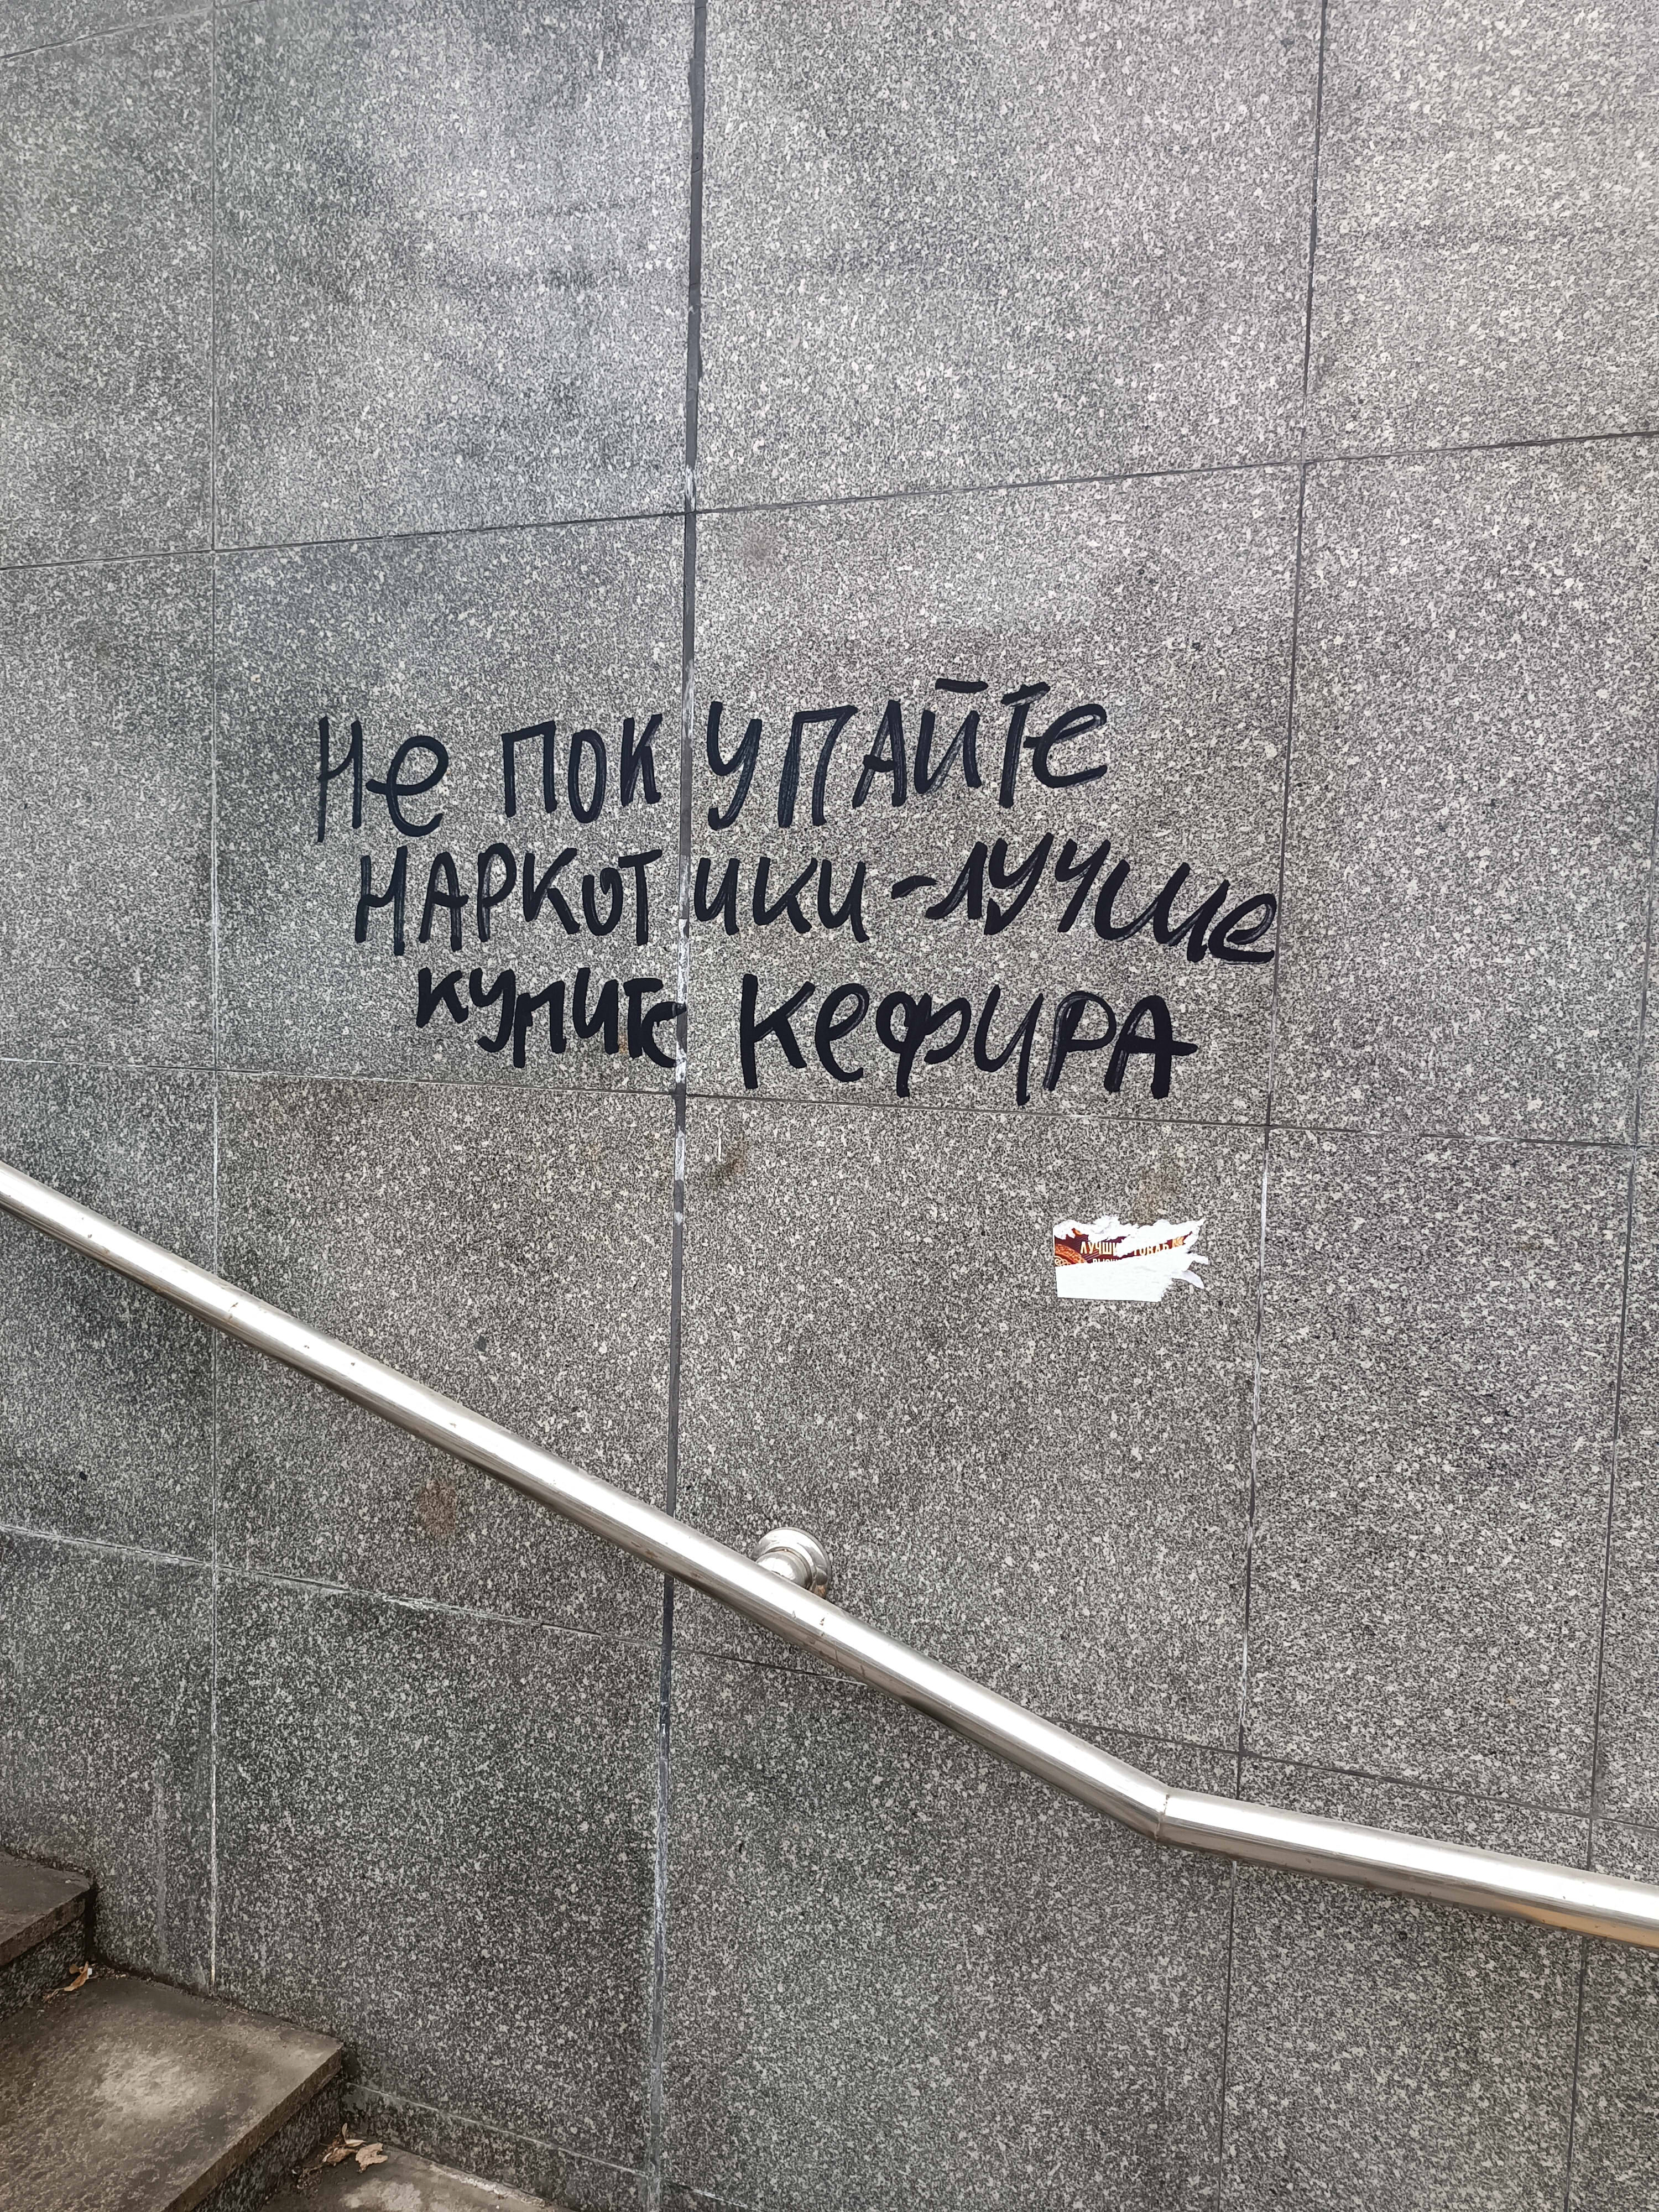 Не покупайте
наркотики - лучше
купите кефира